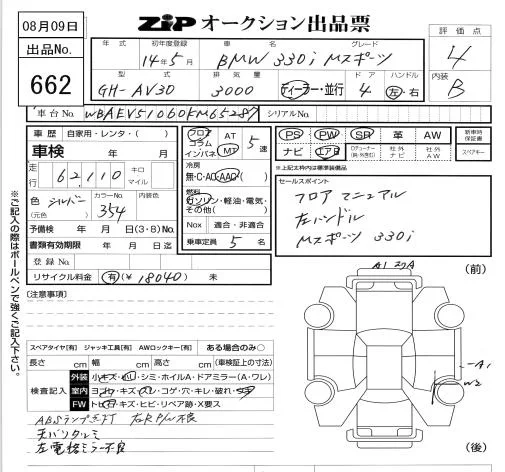 08月09日
ZiP オークション出品票
出品No.
662
評価点
4
内装
B
年式 初年度登録 車名 グレード
14年5月 BMW 330i Mスポーツ
型式 排気量 ドア ハンドル
GH-AV30 3000 ディーラー・並行 4 左・右
車台No. シリアルNo.
車歴 自家用・レンタ・( )
車検 年 月
走行 62,110 キロ マイル
色 シルバー (元色) カラーNo. 354 内装色
予備検 年 月 日(3・8)No.
書類有効期限 年 月 日迄
登録No
リサイクル料金 有(¥18040) 未
フロア コラム インパネ AT MT 5速
冷房
無・C・AC・AAC
燃料
ガソリン・軽油・電気・その他( )
Nox 適合・非適合
乗車定員 5 名
PS PW SR 革 AW 新車時保証書
ナビ エアB 社外ナビ 社外AW スペアキー
※上記太枠内は標準装備品
セールスポイント
フロア マニュアル
左ハンドル
Mスポーツ 330i
※ご記入の際はボールペンで強くご記入下さい。
[注意事項]
スペアタイヤ[有] ジャッキ工具[有] AWロックキー[有] ある場合のみ○
長さ cm 幅 cm 高さ cm (車検証上の寸法)
検査記入
外装 小キズ・凹・シミ・ホイルA・ドアミラー(A・ワレ)
室内 ヨゴレ・キズ・スレ・コゲ・穴・キレ・破れ
FW トビ石・キズ・ヒビ・リペア跡・X要ス
ABSランプ点灯 右R P/W不良
天バリタルミ
左電格ミラー不良
(前)
-A1
W2
(後)